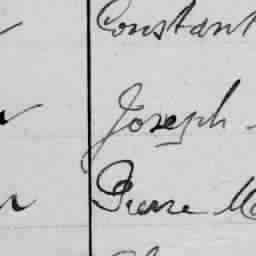 Constant
Joseph
Pierre M